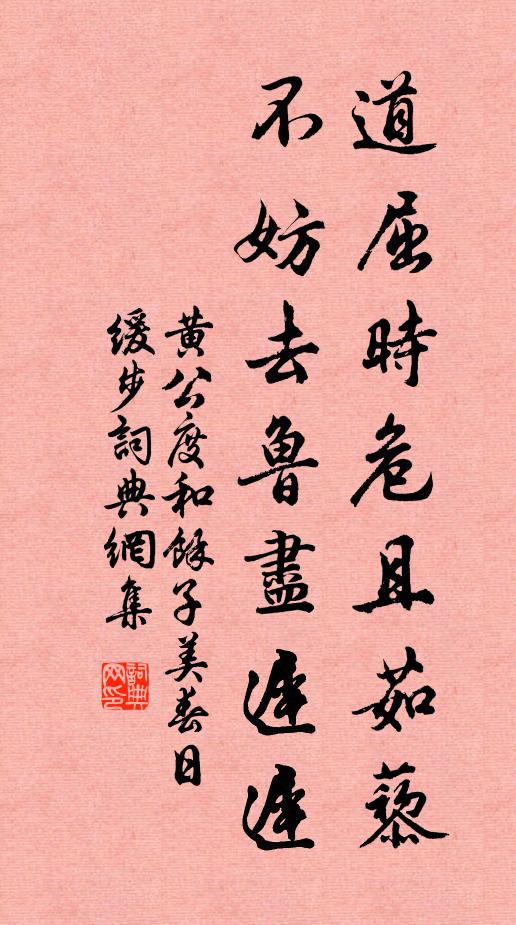 道屈時危且茹藜
不妨去魯盡遲遲
黄公度和餘子美春日
緩步詞典網集
詞典网印